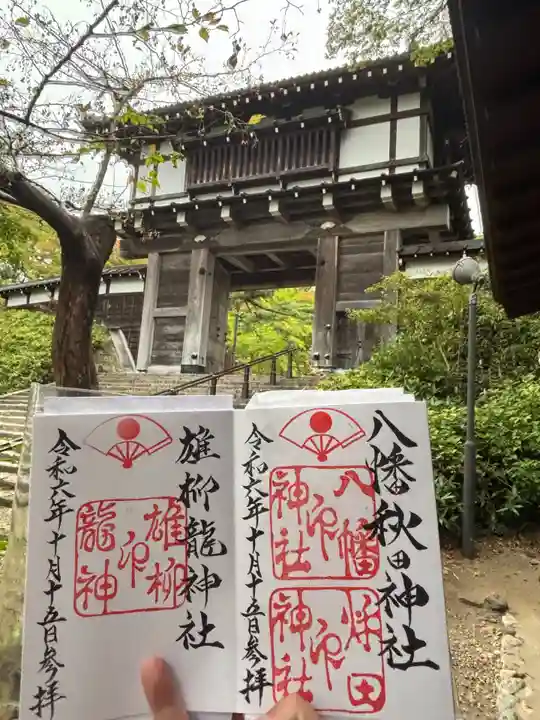 八幡秋田神社
八幡
神社
印
秋田
神社
印
令和六年十月十五日参拝
雄柳龍神社
雄柳
印
龍神
令和六年十月十五日参拝